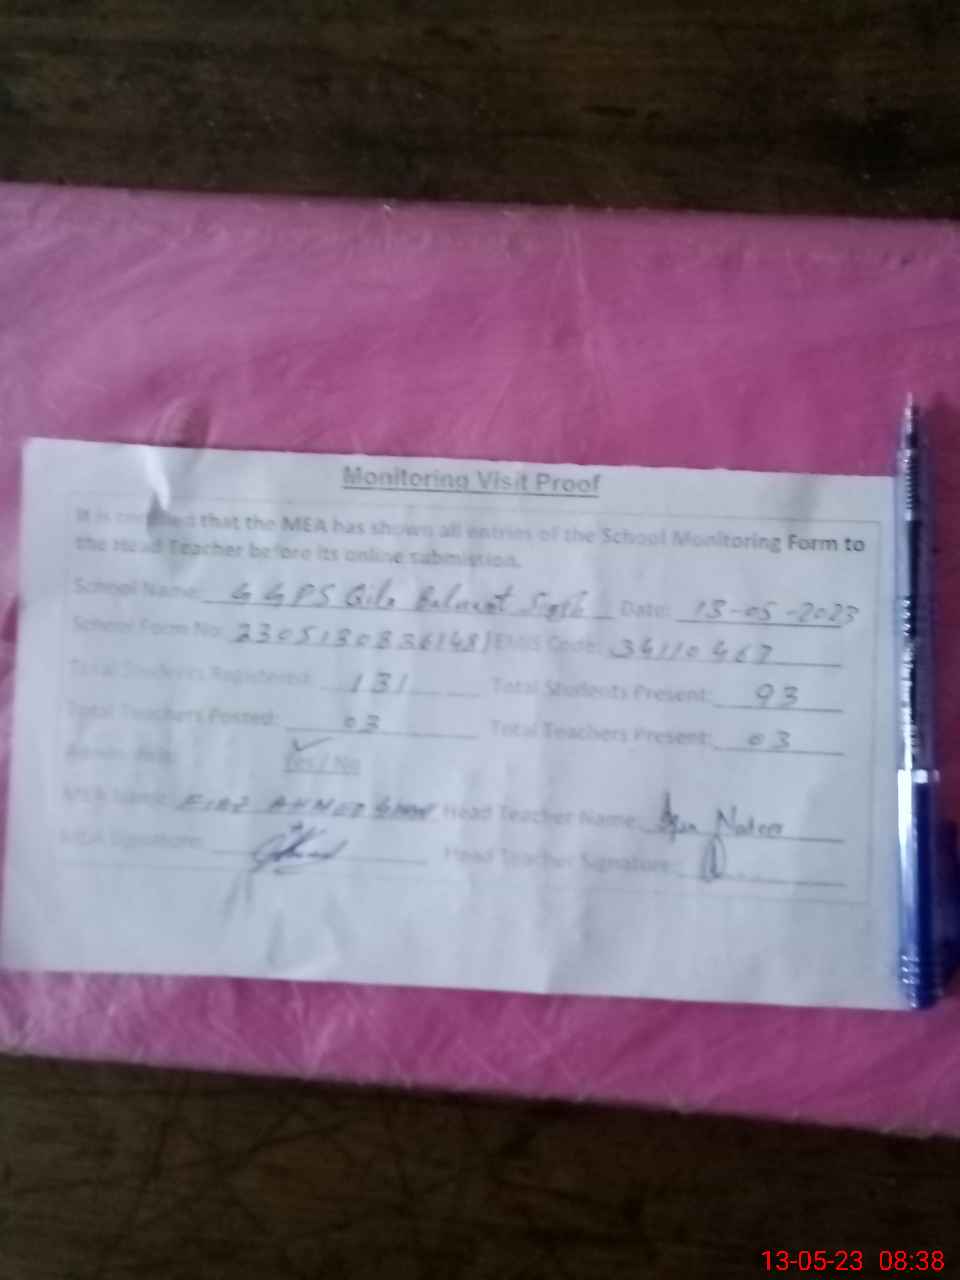 Monitoring Visit Proof
It is certified that the MEA has shown all entries of the School Monitoring Form to
the Head Teacher before its online submission.
School Name: GGPS Qila Balwant Singh Date: 13-05-2023
School Form No: EMIS Code: 34110467
Total Students Registered: 131 Total Students Present: 93
Total Teachers Posted: 03 Total Teachers Present: 03
Yes / No
MEA Name: AHMED Head Teacher Name:
MEA Signature: Head Teacher Signature:
13-05-23 08:38